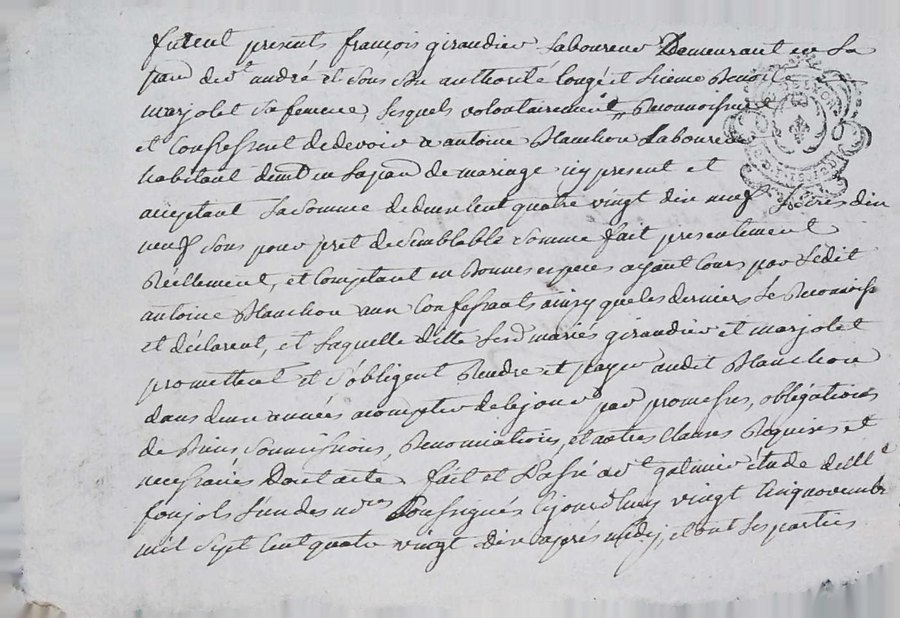 furent presents françois giraudier Laboureur Demeurant en La
parr de st andré et sous son authorité Benoit
marjolet sa femme, lesquels volontairement Reconnoissent
et Confessent de devoir a antoine Blanchon Laboureur
habitant demt en La parr de mariage icy present et
acceptant La somme de deux Cent quatre vingt dix neuf Livres dix
neuf sous pour pret de semblable somme fait presentement
Réellement, et Comptant en Bonnes especes ayant Cours par Ledit
antoine Blanchon aux Confessants ainsy que les derniers Le Reconnoiss
et déclarent, et Laquelle ditte Lesd mariés giraudier et marjolet
promettent et s'obligent Rendre et payer audit Blanchon
dans deux années a compter de ce jour par promesses, obligations
de Biens soumissions, Renonciations, et autres Clauses Requises et
necessaires Dont acte fait et Passé a st galmier étude de Me
foujols L'un des nres soussignés Cejourd'huy vingt Cinq novembre
mil sept Cent quatre vingt dix après midy, et ont Les parties